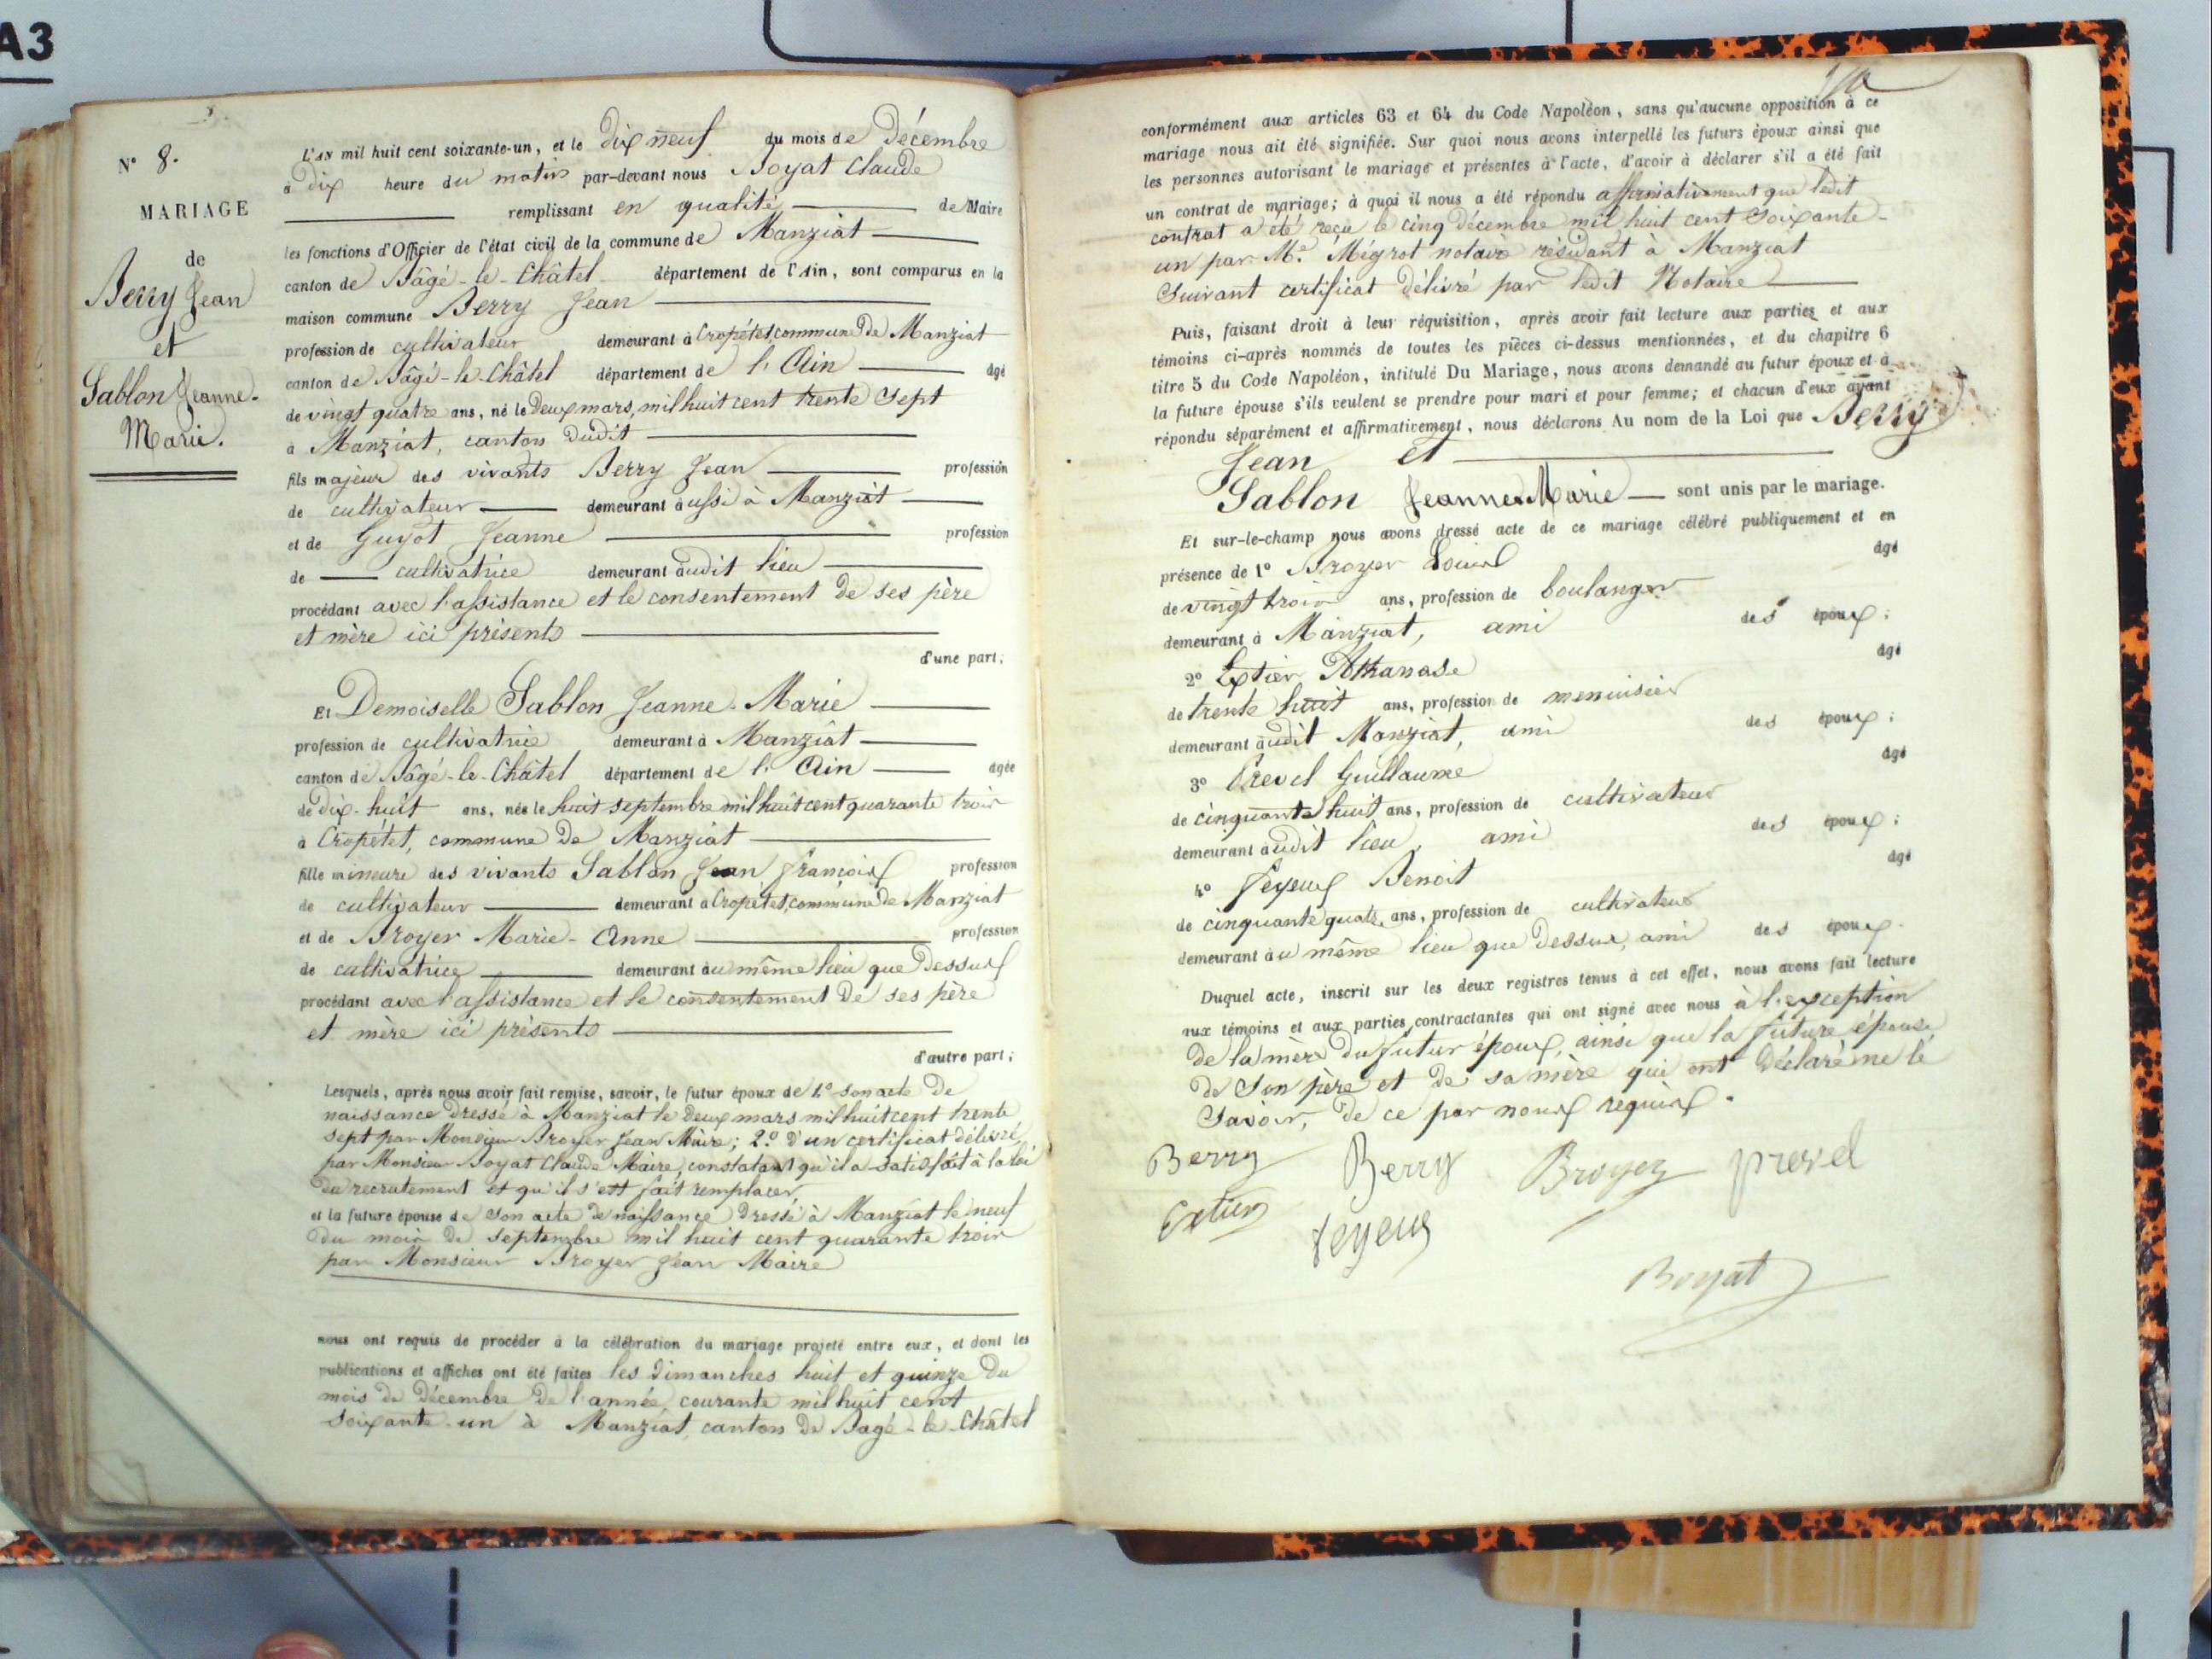 A3
N° 8.
MARIAGE
de
Berry Jean
et
Sablon Jeanne-
Marie.
L'AN mil huit cent soixante-un, et le dix neuf du mois de Décembre
à dix heure du matin par-devant nous Boyat Claude
remplissant en qualité de Maire
les fonctions d'Officier de l'état civil de la commune de Manziat
canton de Bâgé-le-Châtel département de l'Ain, sont comparus en la
maison commune Berry Jean
profession de cultivateur demeurant à Cropétet, commune de Manziat
canton de Bâgé-le-Châtel département de l'Ain âgé
de vingt quatre ans, né le deux mars, mil huit cent trente sept
à Manziat, canton dudit
fils majeur des vivants Berry Jean profession
de cultivateur demeurant aussi à Manziat
et de Guyot Jeanne profession
de cultivatrice demeurant audit lieu
procédant avec l'assistance et le consentement de ses père
et mère ici présents
d'une part;
Et Demoiselle Sablon Jeanne-Marie
profession de cultivatrice demeurant à Manziat
canton de Bâgé-le-Châtel département de l'Ain âgée
de dix-huit ans, née le huit septembre mil huit cent quarante trois
à Cropétet, commune de Manziat
fille mineure des vivants Sablon Jean François profession
de cultivateur demeurant à Cropétet, commune de Manziat
et de Broyer Marie-Anne profession
de cultivatrice demeurant au même lieu que dessus
procédant avec l'assistance et le consentement de ses père
et mère ici présents
d'autre part;
Lesquels, après nous avoir fait remise, savoir, le futur époux de 1° son acte de
naissance dressé à Manziat le deux mars mil huit cent trente
sept par Monsieur Broyer Jean Maire; 2° d'un certificat délivré
par Monsieur Boyat Claude Maire, constatant qu'il a satisfait à la loi
du recrutement et qu'il s'est fait remplacer
et la future épouse de son acte de naissance dressé à Manziat le neuf
du mois de septembre mil huit cent quarante trois
par Monsieur Broyer Jean Maire
nous ont requis de procéder à la célébration du mariage projeté entre eux, et dont les
publications et affiches ont été faites les dimanches huit et quinze du
mois de décembre de l'année courante mil huit cent
soixante-un à Manziat, canton de Bagé-le-Châtel
conformément aux articles 63 et 64 du Code Napoléon, sans qu'aucune opposition à ce
mariage nous ait été signifiée. Sur quoi nous avons interpellé les futurs époux ainsi que
les personnes autorisant le mariage et présentes à l'acte, d'avoir à déclarer s'il a été fait
un contrat de mariage; à quoi il nous a été répondu affirmativement que ledit
contrat a été reçu le cinq décembre mil huit cent soixante-
un par Me. Mégrot notaire résidant à Manziat
suivant certificat délivré par ledit Notaire
Puis, faisant droit à leur réquisition, après avoir fait lecture aux parties et aux
témoins ci-après nommés de toutes les pièces ci-dessus mentionnées, et du chapitre 6
titre 5 du Code Napoléon, intitulé Du Mariage, nous avons demandé au futur époux et à
la future épouse s'ils veulent se prendre pour mari et pour femme; et chacun d'eux ayant
répondu séparément et affirmativement, nous déclarons Au nom de la Loi que Berry
Jean et
Sablon Jeanne-Marie sont unis par le mariage.
Et sur-le-champ nous avons dressé acte de ce mariage célébré publiquement et en
présence de 1° Broyer Louis âgé
de vingt trois ans, profession de boulanger
demeurant à Manziat, ami des époux;
2° Extier Athanase âgé
de trente huit ans, profession de menuisier
demeurant audit Manziat, ami des époux;
3° Prevel Guillaume âgé
de cinquante huit ans, profession de cultivateur
demeurant audit lieu, ami des époux;
4° Feyeux Benoit âgé
de cinquante quatre ans, profession de cultivateur
demeurant au même lieu que dessus, ami des époux.
Duquel acte, inscrit sur les deux registres tenus à cet effet, nous avons fait lecture
aux témoins et aux parties contractantes qui ont signé avec nous à l'exception
de la mère du futur époux, ainsi que la future épouse
de son père et de sa mère qui ont déclaré ne le
savoir, de ce par nous requis.
Berry Berry Broyer prevel
Extier feyeux
Boyat